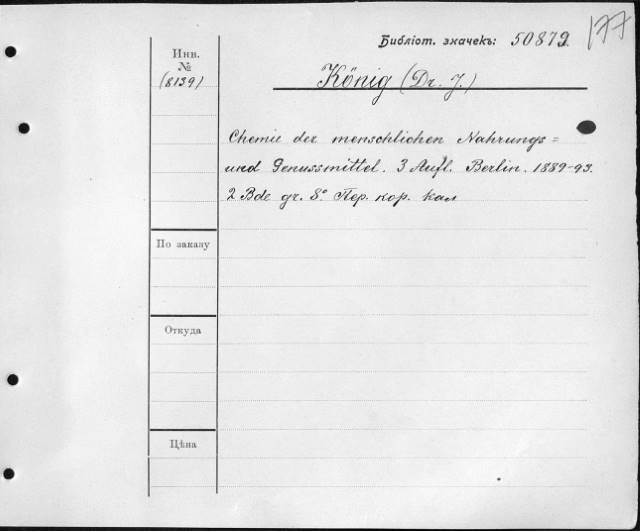 Библіот. значекъ: 50879. 177
Инв.
№
(8139)
König (Dr. J.)
Chemie der menschlichen Nahrungs=
und Genussmittel. 3 Aufl. Berlin. 1889-93.
2 Bde gr. 8° Пер. кор. кал
По заказу
Откуда
Цѣна